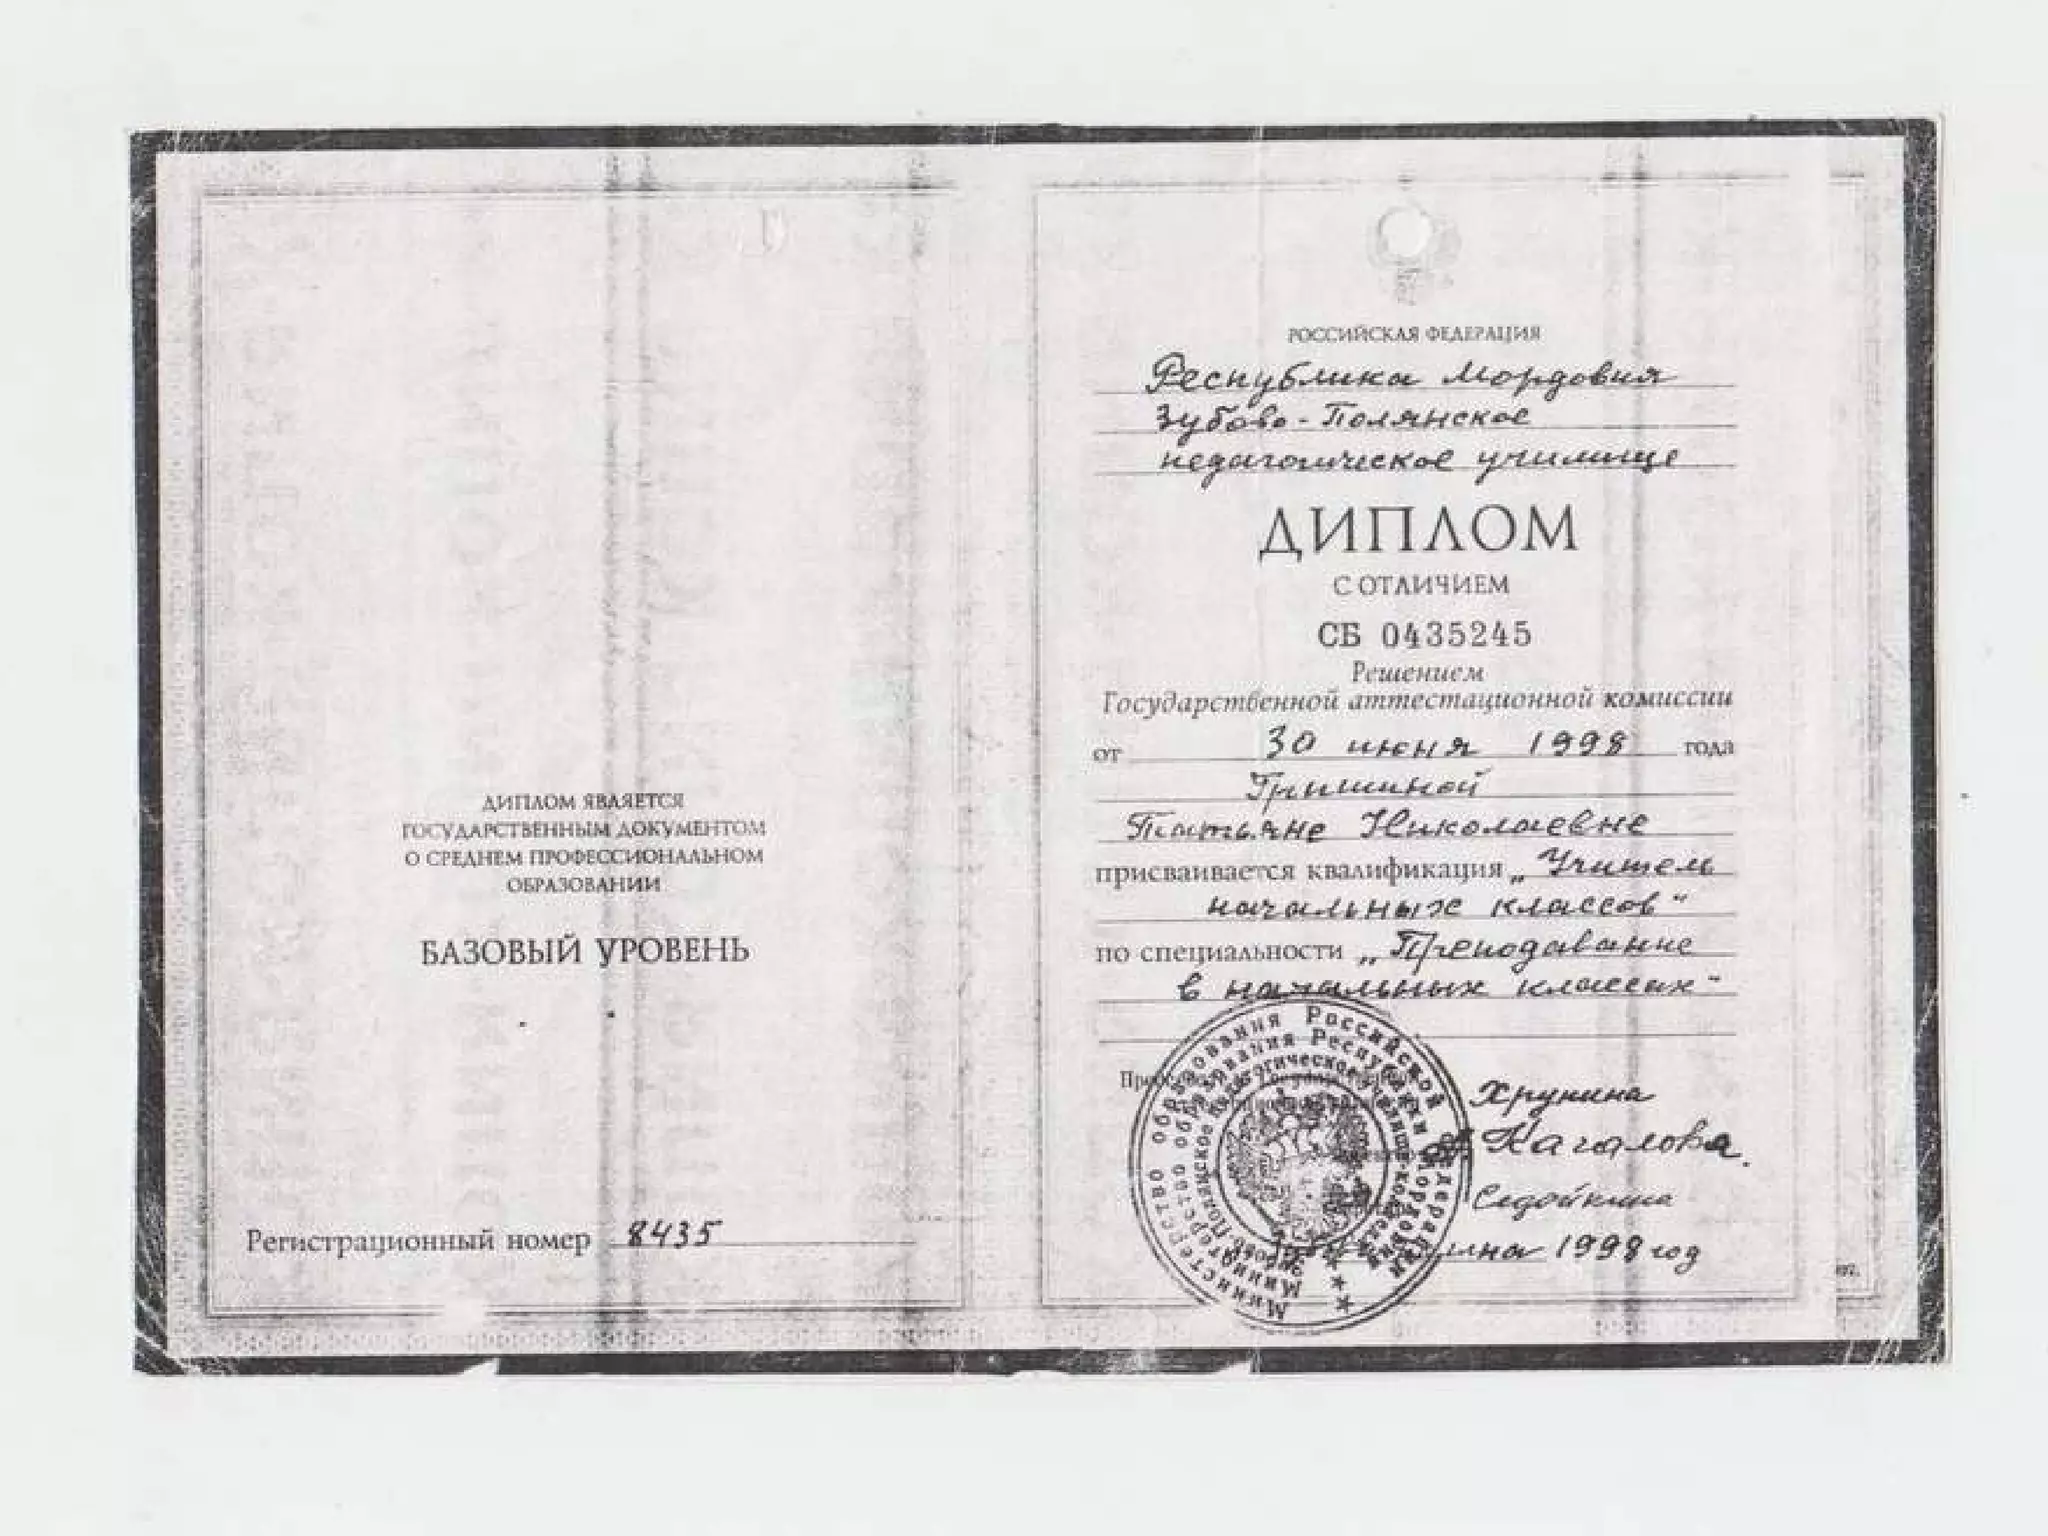 ДИПЛОМ ЯВЛЯЕТСЯ
ГОСУДАРСТВЕННЫМ ДОКУМЕНТОМ
О СРЕДНЕМ ПРОФЕССИОНАЛЬНОМ
ОБРАЗОВАНИИ
БАЗОВЫЙ УРОВЕНЬ
Регистрационный номер 8435
РОССИЙСКАЯ ФЕДЕРАЦИЯ
Республика Мордовия
Зубово-Полянское
педагогическое училище
ДИПЛОМ
С ОТЛИЧИЕМ
СБ 0435245
Решением
Государственной аттестационной комиссии
от 30 июня 1998 года
Гришиной
Татьяне Николаевне
присваивается квалификация „Учитель
начальных классов"
по специальности „Преподавание
в начальных классах"
Министерство образования Российской Федерации
Министерство образования Республики Мордовия
Хрунина
Качалова
Седойкина
1998 год